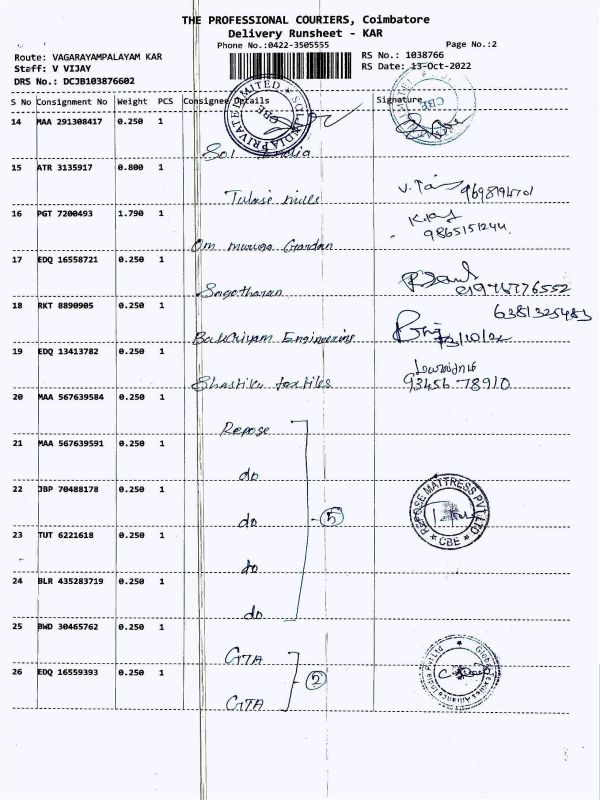 THE PROFESSIONAL COURIERS, Coimbatore
Delivery Runsheet - KAR
Phone No.:0422-3505555
Page No.:2
Route: VAGARAYAMPALAYAM KAR
Staff: V VIJAY
DRS No.: DCJB103876602
RS No.: 1038766
RS Date: 13-Oct-2022
S No Consignment No Weight PCS Consignee Details Signature
14 MAA 291308417 0.250 1
15 ATR 3135917 0.800 1
Tulasi mills 9698194701
16 PGT 7200493 1.790 1
Om muruga Gardan 9865151244
17 EDQ 16558721 0.250 1
Sagotharan
18 RKT 8890905 0.250 1 6381325483
Bakkiyam Engineering 13/10/22
19 EDQ 13413782 0.250 1
Shastika textiles 93456 78910
20 MAA 567639584 0.250 1
Repose
21 MAA 567639591 0.250 1
do
22 JBP 70488178 0.250 1
do 5
REPOSE MATTRESS PVT LTD
* CBE *
23 TUT 6221618 0.250 1
do
24 BLR 435283719 0.250 1
do
25 BWD 30465762 0.250 1
GTA
26 EDQ 16559393 0.250 1
2
GTA